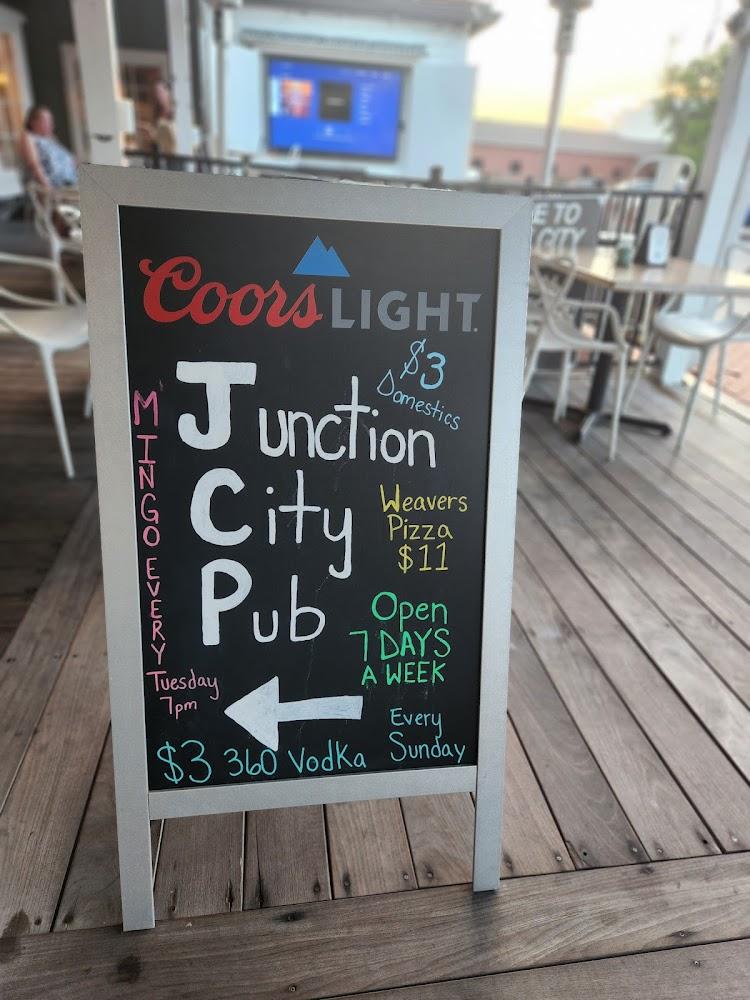 Coors LIGHT.
$3
Domestics
Junction
City
Pub
MINGO EVERY
Tuesday
7pm
Weavers
Pizza
$11
Open
7 DAYS
A WEEK
$3 360 Vodka
Every
Sunday
E TO
CITY